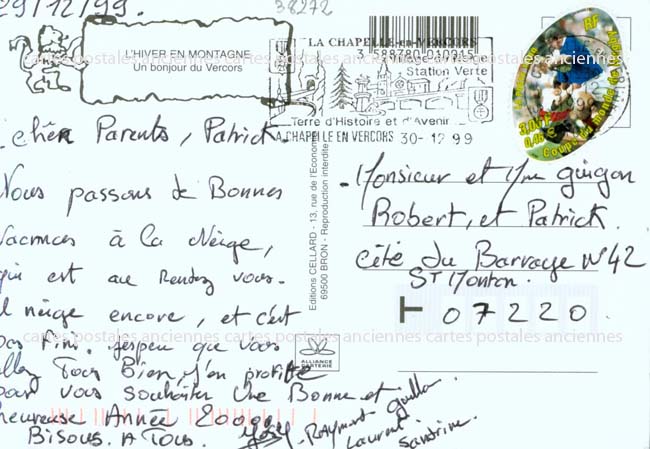 29/12/99.
38272
L'HIVER EN MONTAGNE
Un bonjour du Vercors
LA CHAPELLE-en-VERCORS
3 588780 010915
Village
Station Verte
Terre d'Histoire et d'Avenir
LA CHAPELLE EN VERCORS 30-12 99
RF
3,00
0,46 €
Coupe du monde de
cartes postales anciennes cartes postales anciennes cartes postales anciennes
chers Parents, Patrick.
Nous passons de Bonnes
Vacances à la Neige,
qui est au Rendez vous.
il neige encore, et c'est
pas Fini. que vous
allez Tous Bien, j'en profite
pour vous souhaiter Une Bonne et
heureuse Année 2000.
Bisous. A Tous.
Raymond
Laurent
Sandrine.
Editions CELLARD - 13, rue de l'Economie
69500 BRON - Reproduction interdite
Monsieur et Mme Guigon
Robert, et Patrick.
Cité du Barrage N°42
ST Montan.
07220
cartes postales anciennes cartes postales anciennes cartes postales anciennes
ALLIANCE
CARTERIE